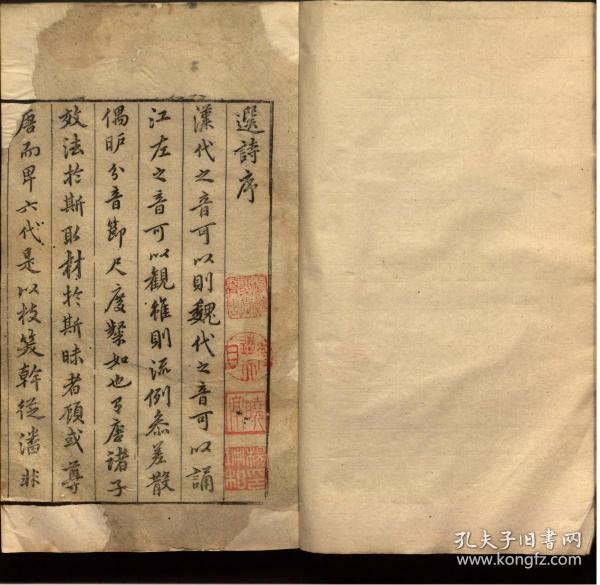 選詩序
漢代之音可以則魏代之音可以誦
江左之音可以觀雖則流例參差散
偶昈分音節尺度粲如也有唐諸子
效法於斯取材於斯昧者顧或尊
唐而卑六代是以枝笑榦從潘非
孔夫子旧书网
www.kongfz.com